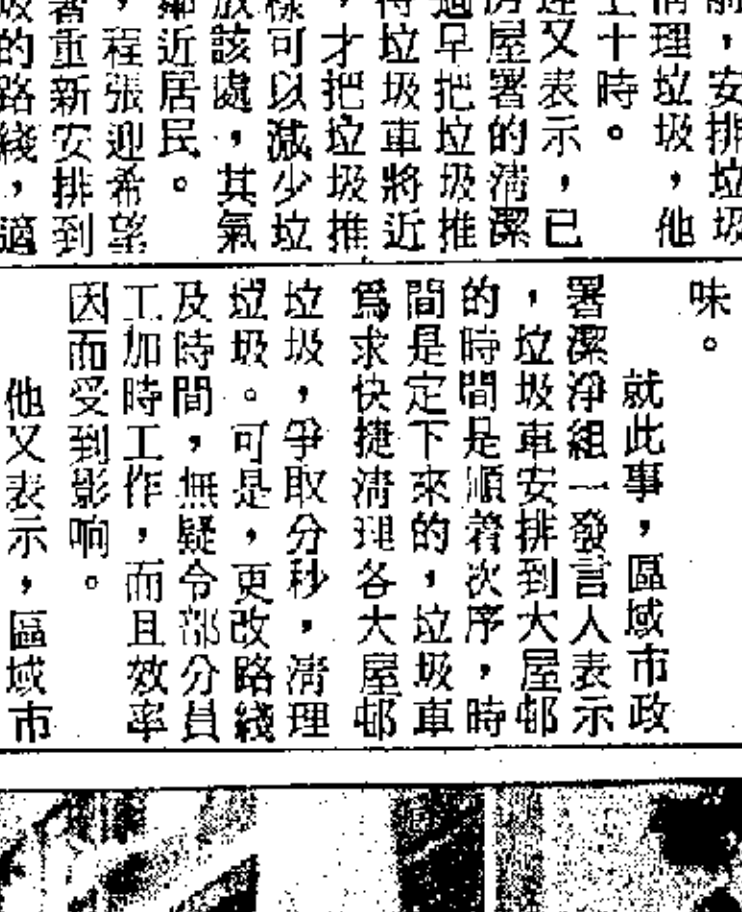 ，安排垃圾
理垃圾，他
十時。
又表示，已
屋署的清潔
早把垃圾推
垃圾車將近
，才把垃圾推
樣可以減少垃
放該處，其氣
鄰近居民。
，程張迎希望
署重新安排到
圾的路綫，適
味。
就此事，區域市政
署潔淨組一發言人表示
，垃圾車安排到大屋邨
的時間是順着次序，時
間是定下來的，垃圾車
爲求快捷清理各大屋邨
垃圾，爭取分秒，清理
垃圾。可是，更改路綫
及時間，無疑令部分員
工加時工作，而且效率
因而受到影响。
他又表示，區域市